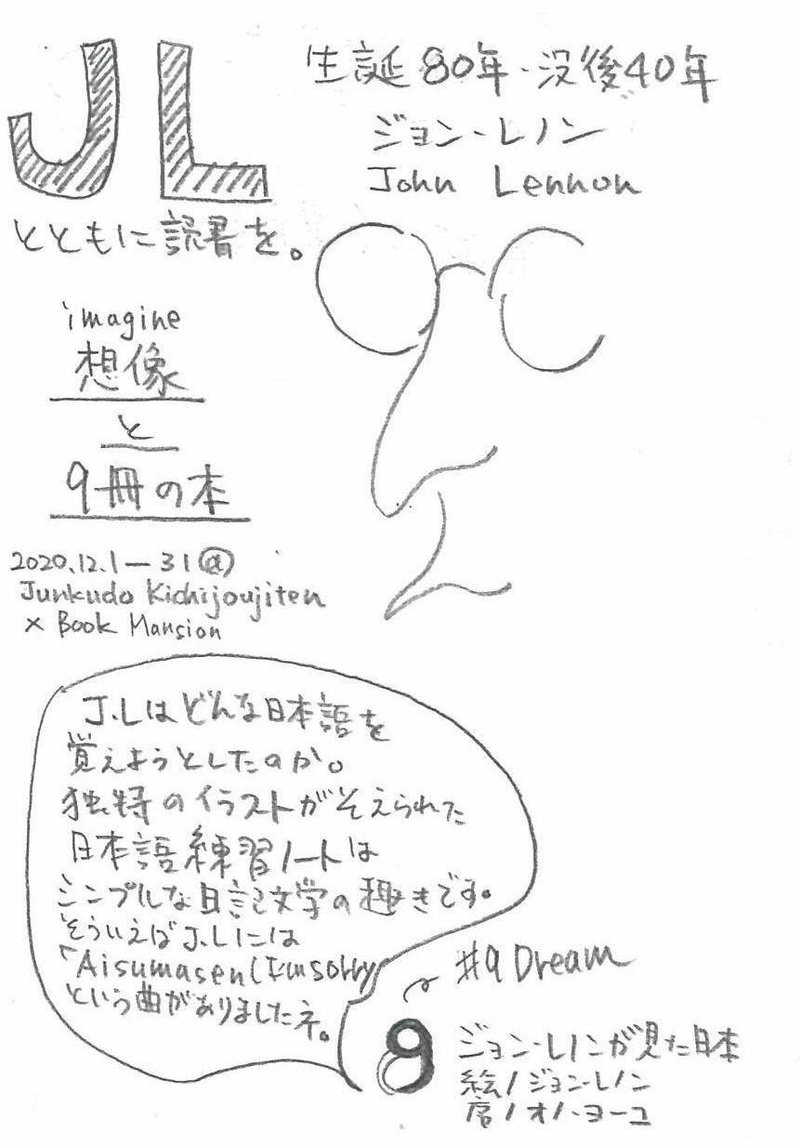 JL
とともに読書を。
生誕80年・没後40年
ジョン・レノン
John Lennon
imagine
想像
と
9冊の本
2020.12.1－31@
Junkudo Kichijoujiten
× Book Mansion
J.Lはどんな日本語を
覚えようとしたのか。
独特のイラストがそえられた
日本語練習ノートは
シンプルな日記文学の趣きです。
そういえばJ.Lには
「Aisumasen(I'm sorry)
という曲がありましたネ。
#9 Dream
9
ジョン・レノンが見た日本
絵/ジョン・レノン
序/オノ・ヨーコ